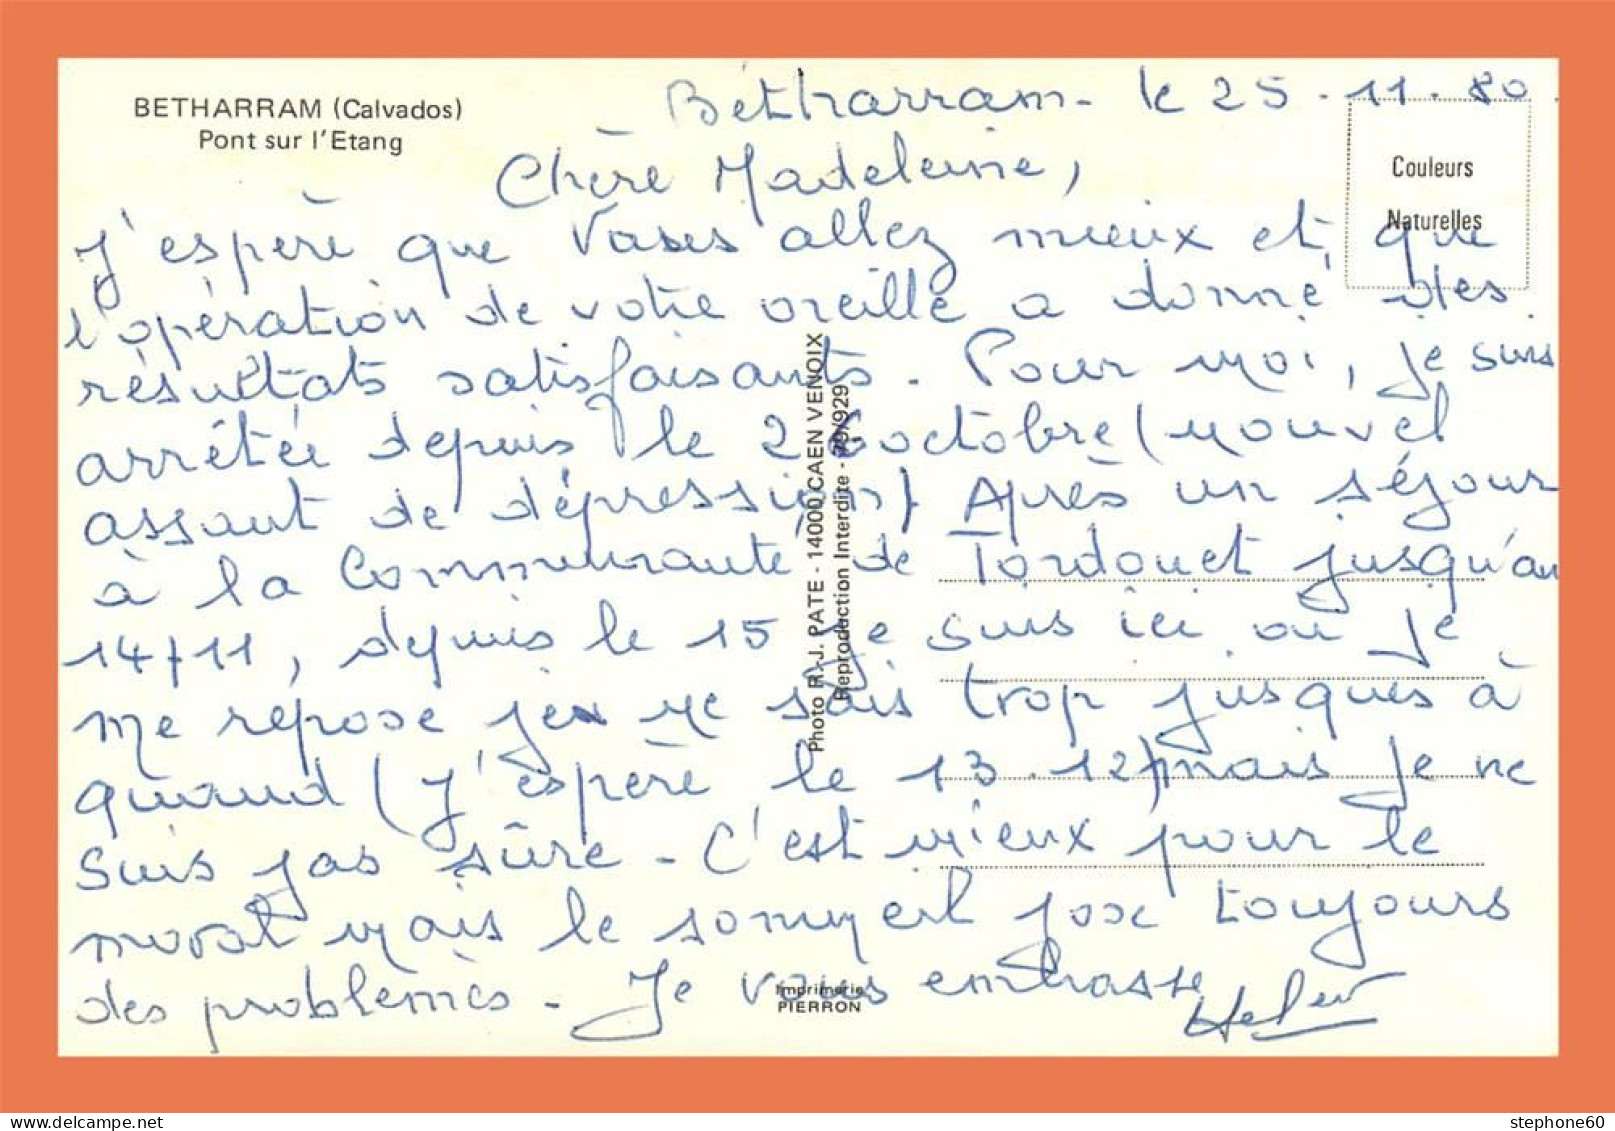 BETHARRAM (Calvados)
Pont sur l'Etang
Bétharram - le 25.11.80.
Couleurs
Naturelles
Chère Madeleine,
J'espère que Vous allez mieux et que
l'opération de votre oreille a donné des
résultats satisfaisants. Pour moi, je suis
arrêtée depuis le 26 octobre (nouvel
assaut de dépression) Après un séjour
à la Communauté de Tordouet jusqu'au
14/11, depuis le 15 je suis ici où je
me repose je ne sais trop jusques à
quand (j'espère le 13.12) mais je ne
suis pas sûre - C'est mieux pour le
moral mais le sommeil pose toujours
des problèmes - Je vous embrasse
Photo R.-J. PATE - 14000 CAEN VENOIX
Reproduction Interdite - 79/929
Imprimerie
PIERRON
delcampe.net
stephone60